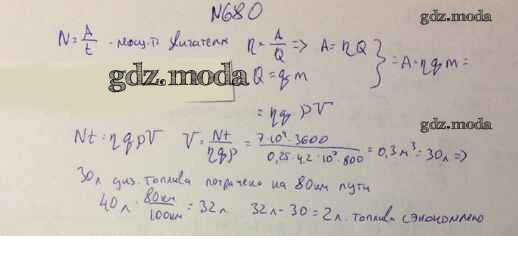 N680
gdz.moda
N = A/t - мощ-ть двигателя η = A/Q => A = ηQ } = A = ηqm =
gdz.moda
Q = qm
= ηqρV
gdz.moda
Nt = ηqρV V = Nt/ηqρ = 7·10⁴·3600/0,25·42·10⁶·800 = 0,3 м³ = 30л =>
30л диз. топлива потрачено на 80км пути
40л · 80км/100км = 32л 32л - 30 = 2л. топлива сэкономлено